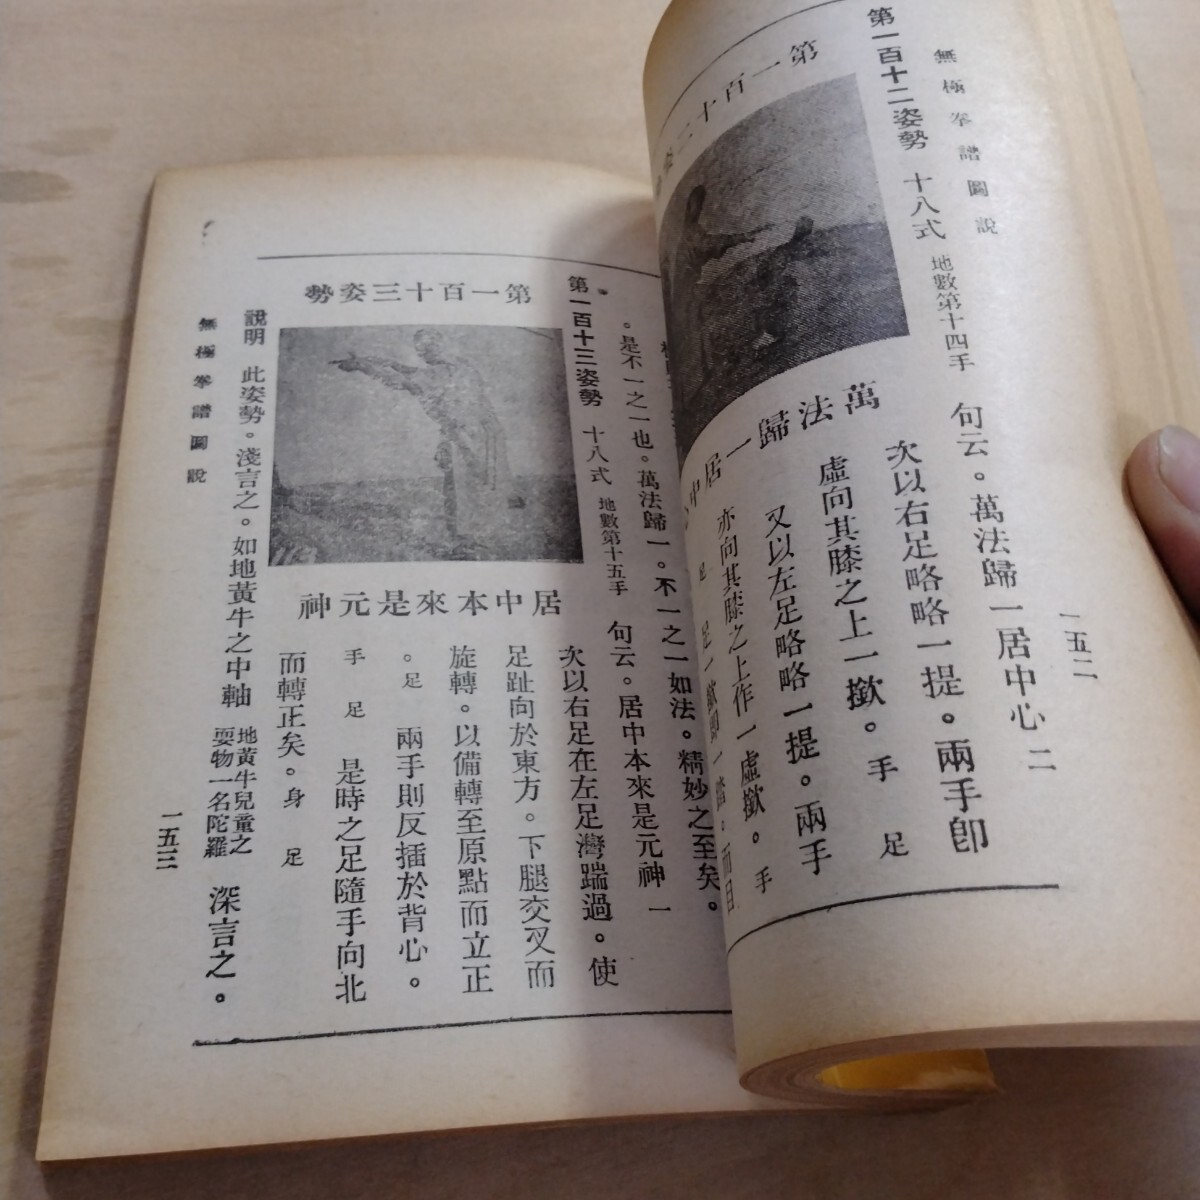 無極拳譜圖說
一五二
第一百十二姿勢 十八式 地數第十四手 句云。萬法歸一居中心 二
萬法歸一居中
次以右足略略一提。兩手卽
虛向其膝之上一撳。手 足
又以左足略略一提。兩手
亦向其膝之上作一虛撳。手
。是不一之一也。萬法歸一。不一之一如法。精妙之至矣。
第一百十三姿勢 十八式 地數第十五手 句云。居中本來是元神 一
第一百十三姿勢
居中本來是元神
次以右足在左足灣踹過。使
足趾向於東方。下腿交叉而
旋轉。以備轉至原點而立正
。足 兩手則反插於背心。
手 足 是時之足隨手向北
而轉正矣。身 足
說明 此姿勢。淺言之。如地黃牛之中軸 地黃牛兒童之耍物一名陀羅 深言之。
無極拳譜圖說
一五三